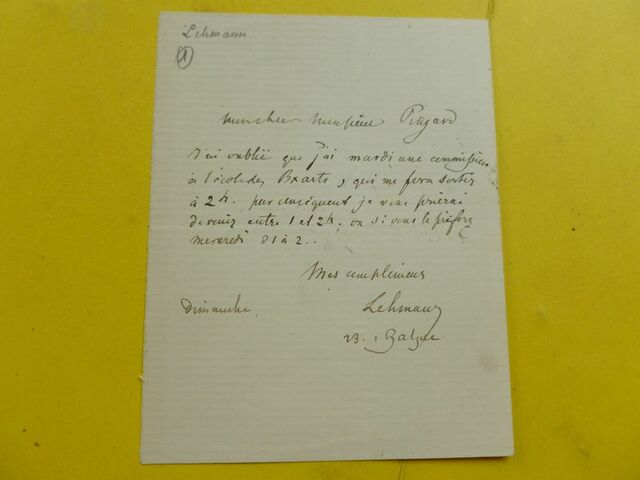 Lehmann
1
mon cher monsieur Pingard
J'ai oublié que j'ai mardi une commission
à l'école des Bxarts, qui me fera sortir
à 2h. par conséquent je vous prierai
de venir entre 1 et 2h, ou si vous le préférez
mercredi d 1 à 2..
Mes compliments
Dimanche. Lehmann
23. Balzac